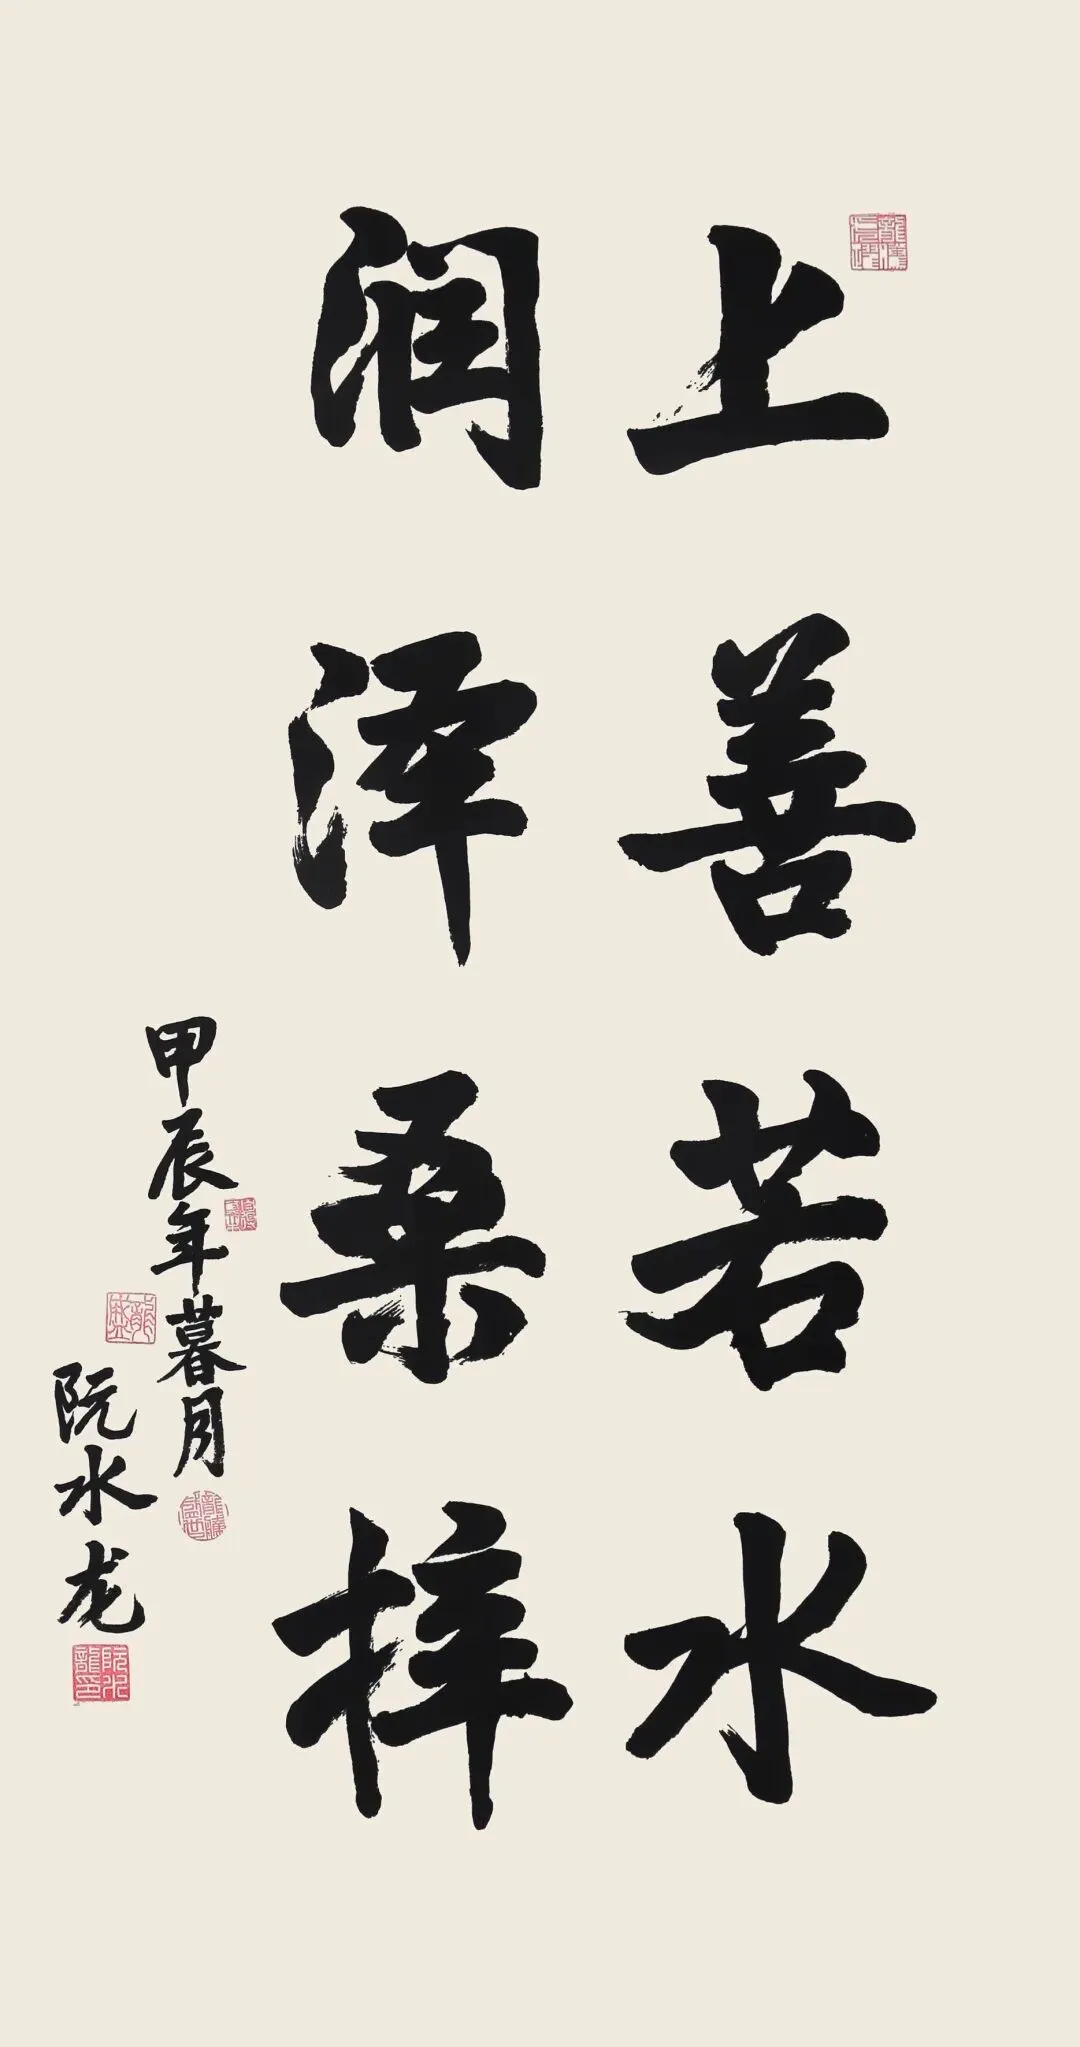 上善若水
润泽桑梓
甲辰年暮月
阮水龙
阮水龍印